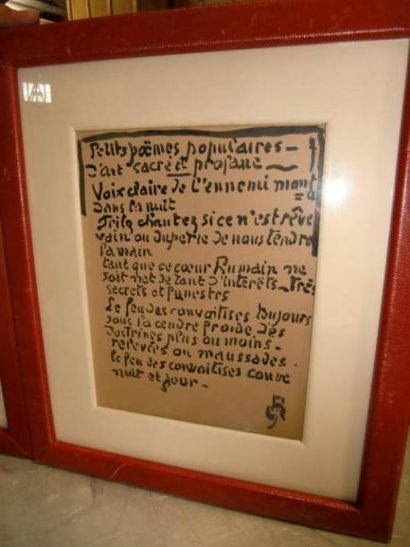 Petits poëmes populaires -
d'art sacré et profane -
Voix claire de l'ennemi mont
= a
dans la nuit
Fritz chantez si ce n'est rêve
vain ou duperie de nous tendre
la main
tant que ce coeur Humain ne
soit net de tant d'intérêts - très
secrets et funestes
Le feu des convoitises toujours
sous la cendre froide des
doctrines plus ou moins -
relevées ou maussades.
le feu des convoitises couve
nuit et jour -
GR